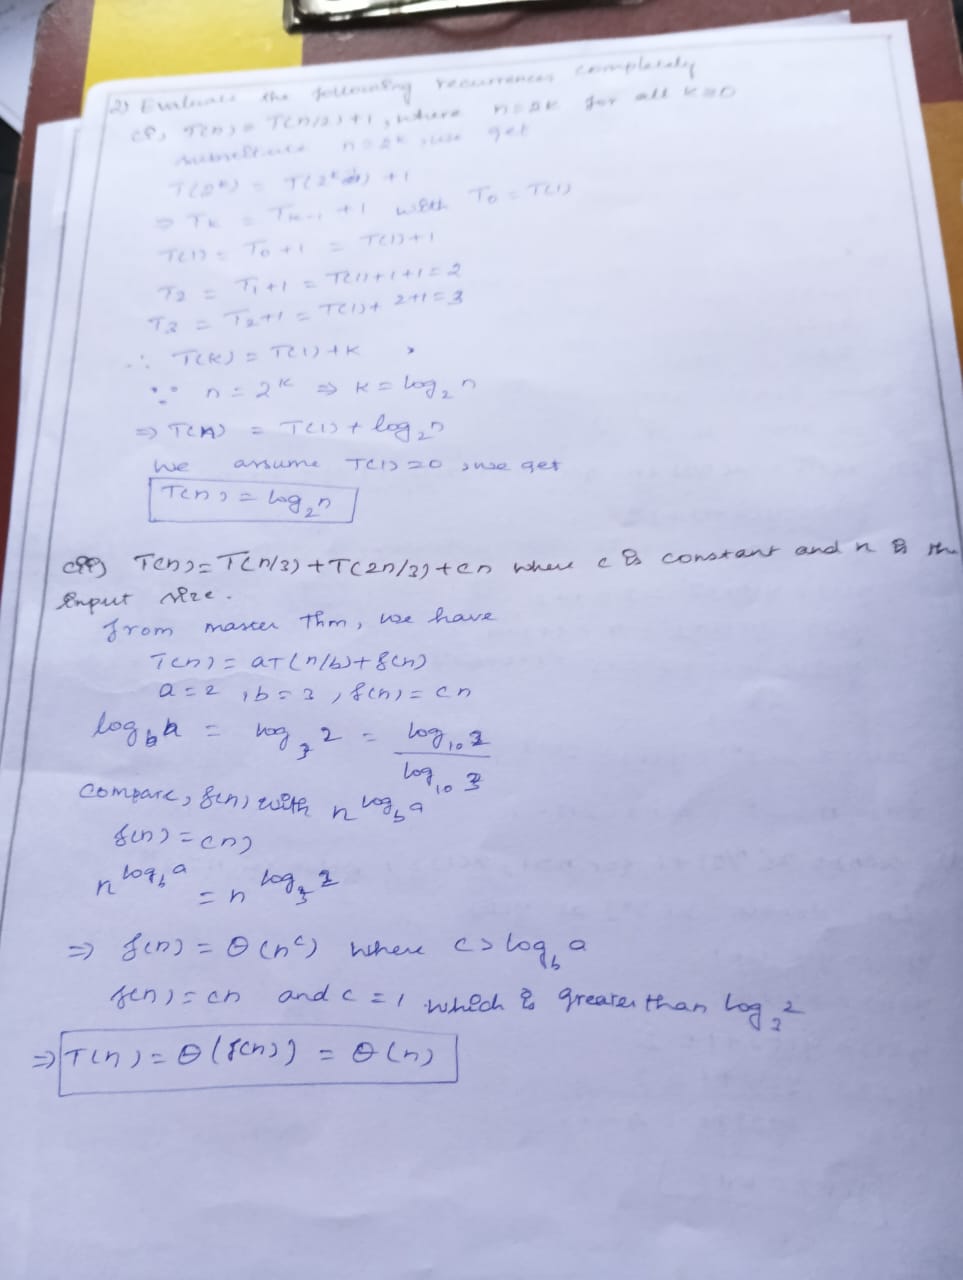 2) Evaluate the following recurrences completely
(i) T(n) = T(n/2)+1, where n=2k for all k≥0
substitute n=2^k, we get
T(2^k) = T(2^k-1) +1
⇒ Tk = Tk-1 +1 with T0 = T(1)
T(1) = T0+1 = T(1)+1
T2 = T1+1 = T(1)+1+1=2
T3 = T2+1 = T(1)+ 2+1=3
∴ T(k) = T(1)+k ,
∵ n=2^k ⇒ k = log_2 n
⇒ T(n) = T(1)+ log_2 n
We assume T(1)=0, we get
T(n) = log_2 n
(ii) T(n) = T(n/3) + T(2n/3) + cn where c is constant and n is the
input size.
from master thm, we have
T(n) = aT(n/b)+f(n)
a=2, b=3, f(n)=cn
log_b a = log_3 2 = log_10 2 / log_10 3
compare, f(n) with n^log_b a
f(n) = cn)
n^log_b a = n^log_3 2
⇒ f(n) = Θ(n^c) where c > log_b a
f(n)=cn and c=1 which is greater than log_3 2
⇒ T(n) = Θ(f(n)) = Θ(n)